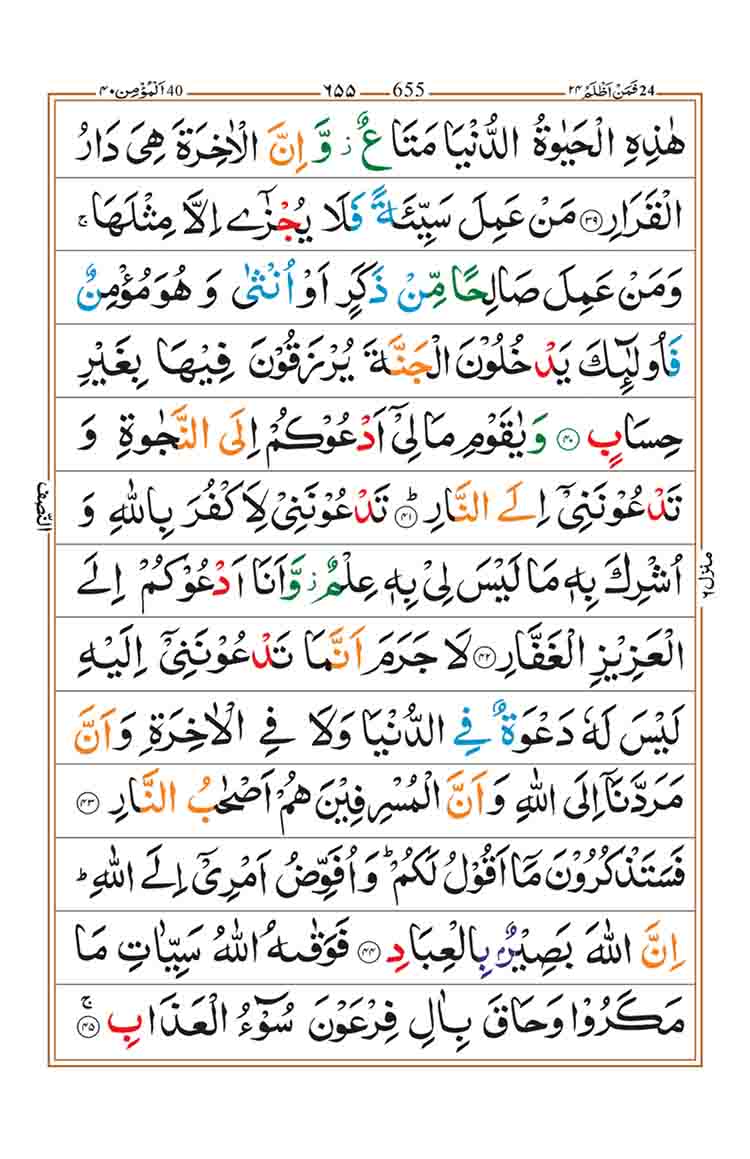 24 فَمَنْ اَظْلَمُ ٢٤ 655 ٦٥٥ 40 اَلْمُؤْمِن ٤٠
هٰذِهِ الْحَيٰوةُ الدُّنْيَا مَتَاعٌ ز وَّ اِنَّ الْاٰخِرَةَ هِىَ دَارُ
الْقَرَارِ ﴿۳۹﴾ مَنْ عَمِلَ سَيِّئَةً فَلَا يُجْزٰٓى اِلَّا مِثْلَهَا ج
وَمَنْ عَمِلَ صَالِحًا مِّنْ ذَكَرٍ اَوْ اُنْثٰى وَ هُوَ مُؤْمِنٌ
فَاُولٰٓئِكَ يَدْخُلُوْنَ الْجَنَّةَ يُرْزَقُوْنَ فِيْهَا بِغَيْرِ
حِسَابٍ ﴿۴۰﴾ وَ يٰقَوْمِ مَا لِىْٓ اَدْعُوْكُمْ اِلَى النَّجٰوةِ وَ
تَدْعُوْنَنِىْٓ اِلَى النَّارِ ط ﴿۴۱﴾ تَدْعُوْنَنِىْ لِاَكْفُرَ بِاللّٰهِ وَ
اُشْرِكَ بِهٖ مَا لَيْسَ لِىْ بِهٖ عِلْمٌ ز وَّ اَنَا اَدْعُوْكُمْ اِلَى
الْعَزِيْزِ الْغَفَّارِ ﴿۴۲﴾ لَا جَرَمَ اَنَّمَا تَدْعُوْنَنِىْٓ اِلَيْهِ
لَيْسَ لَهٗ دَعْوَةٌ فِى الدُّنْيَا وَلَا فِى الْاٰخِرَةِ وَ اَنَّ
مَرَدَّنَآ اِلَى اللّٰهِ وَ اَنَّ الْمُسْرِفِيْنَ هُمْ اَصْحٰبُ النَّارِ ﴿۴۳﴾
فَسَتَذْكُرُوْنَ مَآ اَقُوْلُ لَكُمْ ط وَ اُفَوِّضُ اَمْرِىْٓ اِلَى اللّٰهِ ط
اِنَّ اللّٰهَ بَصِيْرٌۢ بِالْعِبَادِ ﴿۴۴﴾ فَوَقٰىهُ اللّٰهُ سَيِّاٰتِ مَا
مَكَرُوْا وَحَاقَ بِاٰلِ فِرْعَوْنَ سُوْٓءُ الْعَذَابِ ج ﴿۴۵﴾
النّصف
منزل ٦